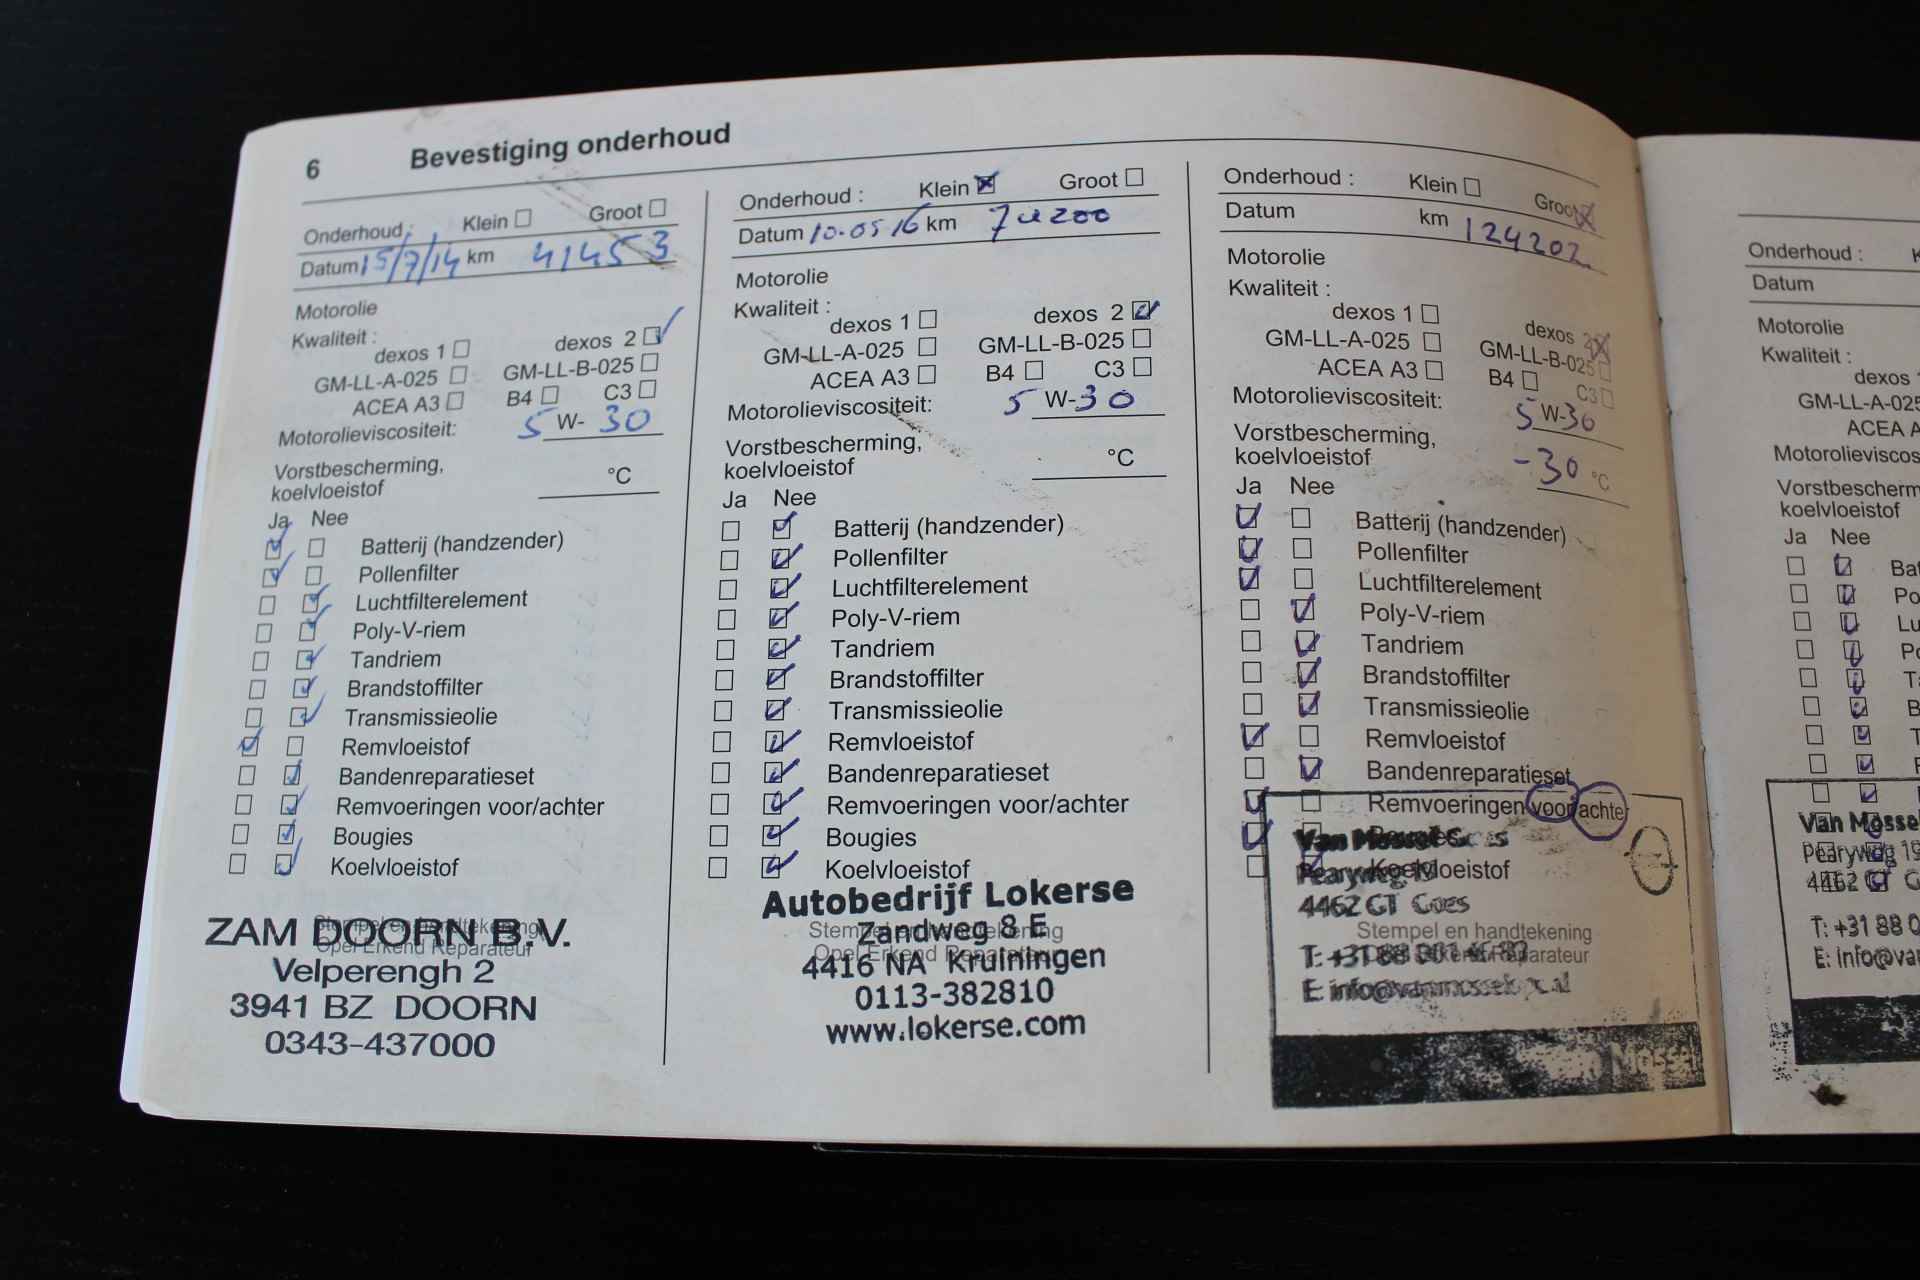 6 Bevestiging onderhoud
Onderhoud : Klein Groot
Datum 15/7/14 km 41453
Motorolie
Kwaliteit :
dexos 1 dexos 2
GM-LL-A-025 GM-LL-B-025
ACEA A3 B4 C3
Motorolieviscositeit: 5 W- 30
Vorstbescherming,
koelvloeistof °C
Ja Nee
Batterij (handzender)
Pollenfilter
Luchtfilterelement
Poly-V-riem
Tandriem
Brandstoffilter
Transmissieolie
Remvloeistof
Bandenreparatieset
Remvoeringen voor/achter
Bougies
Koelvloeistof
Stempel en handtekening
Opel Erkend Reparateur
ZAM DOORN B.V.
Velperengh 2
3941 BZ DOORN
0343-437000
Onderhoud : Klein Groot
Datum 10-05-16 km 74200
Motorolie
Kwaliteit :
dexos 1 dexos 2
GM-LL-A-025 GM-LL-B-025
ACEA A3 B4 C3
Motorolieviscositeit: 5 W-30
Vorstbescherming,
koelvloeistof °C
Ja Nee
Batterij (handzender)
Pollenfilter
Luchtfilterelement
Poly-V-riem
Tandriem
Brandstoffilter
Transmissieolie
Remvloeistof
Bandenreparatieset
Remvoeringen voor/achter
Bougies
Koelvloeistof
Stempel en handtekening
Opel Erkend Reparateur
Autobedrijf Lokerse
Zandweg 8 E
4416 NA Kruiningen
0113-382810
www.lokerse.com
Onderhoud : Klein Groot
Datum km 124202
Motorolie
Kwaliteit :
dexos 1 dexos 2
GM-LL-A-025 GM-LL-B-025
ACEA A3 B4 C3
Motorolieviscositeit: 5 W-30
Vorstbescherming,
koelvloeistof -30 °C
Ja Nee
Batterij (handzender)
Pollenfilter
Luchtfilterelement
Poly-V-riem
Tandriem
Brandstoffilter
Transmissieolie
Remvloeistof
Bandenreparatieset
Remvoeringen voor/achter
Koelvloeistof
Stempel en handtekening
Van Mossel Goes
Pearyweg 19
4462 GT Goes
Onderhoud :
Datum
Motorolie
Kwaliteit :
dexos 1
GM-LL-A-025
ACEA A
Motorolieviscos
Vorstbescherm
koelvloeistof
Ja Nee
Bat
Po
Lu
Van Mosse
Pearyweg 19
4462 GT G
T: +31 88 0
E: info@va